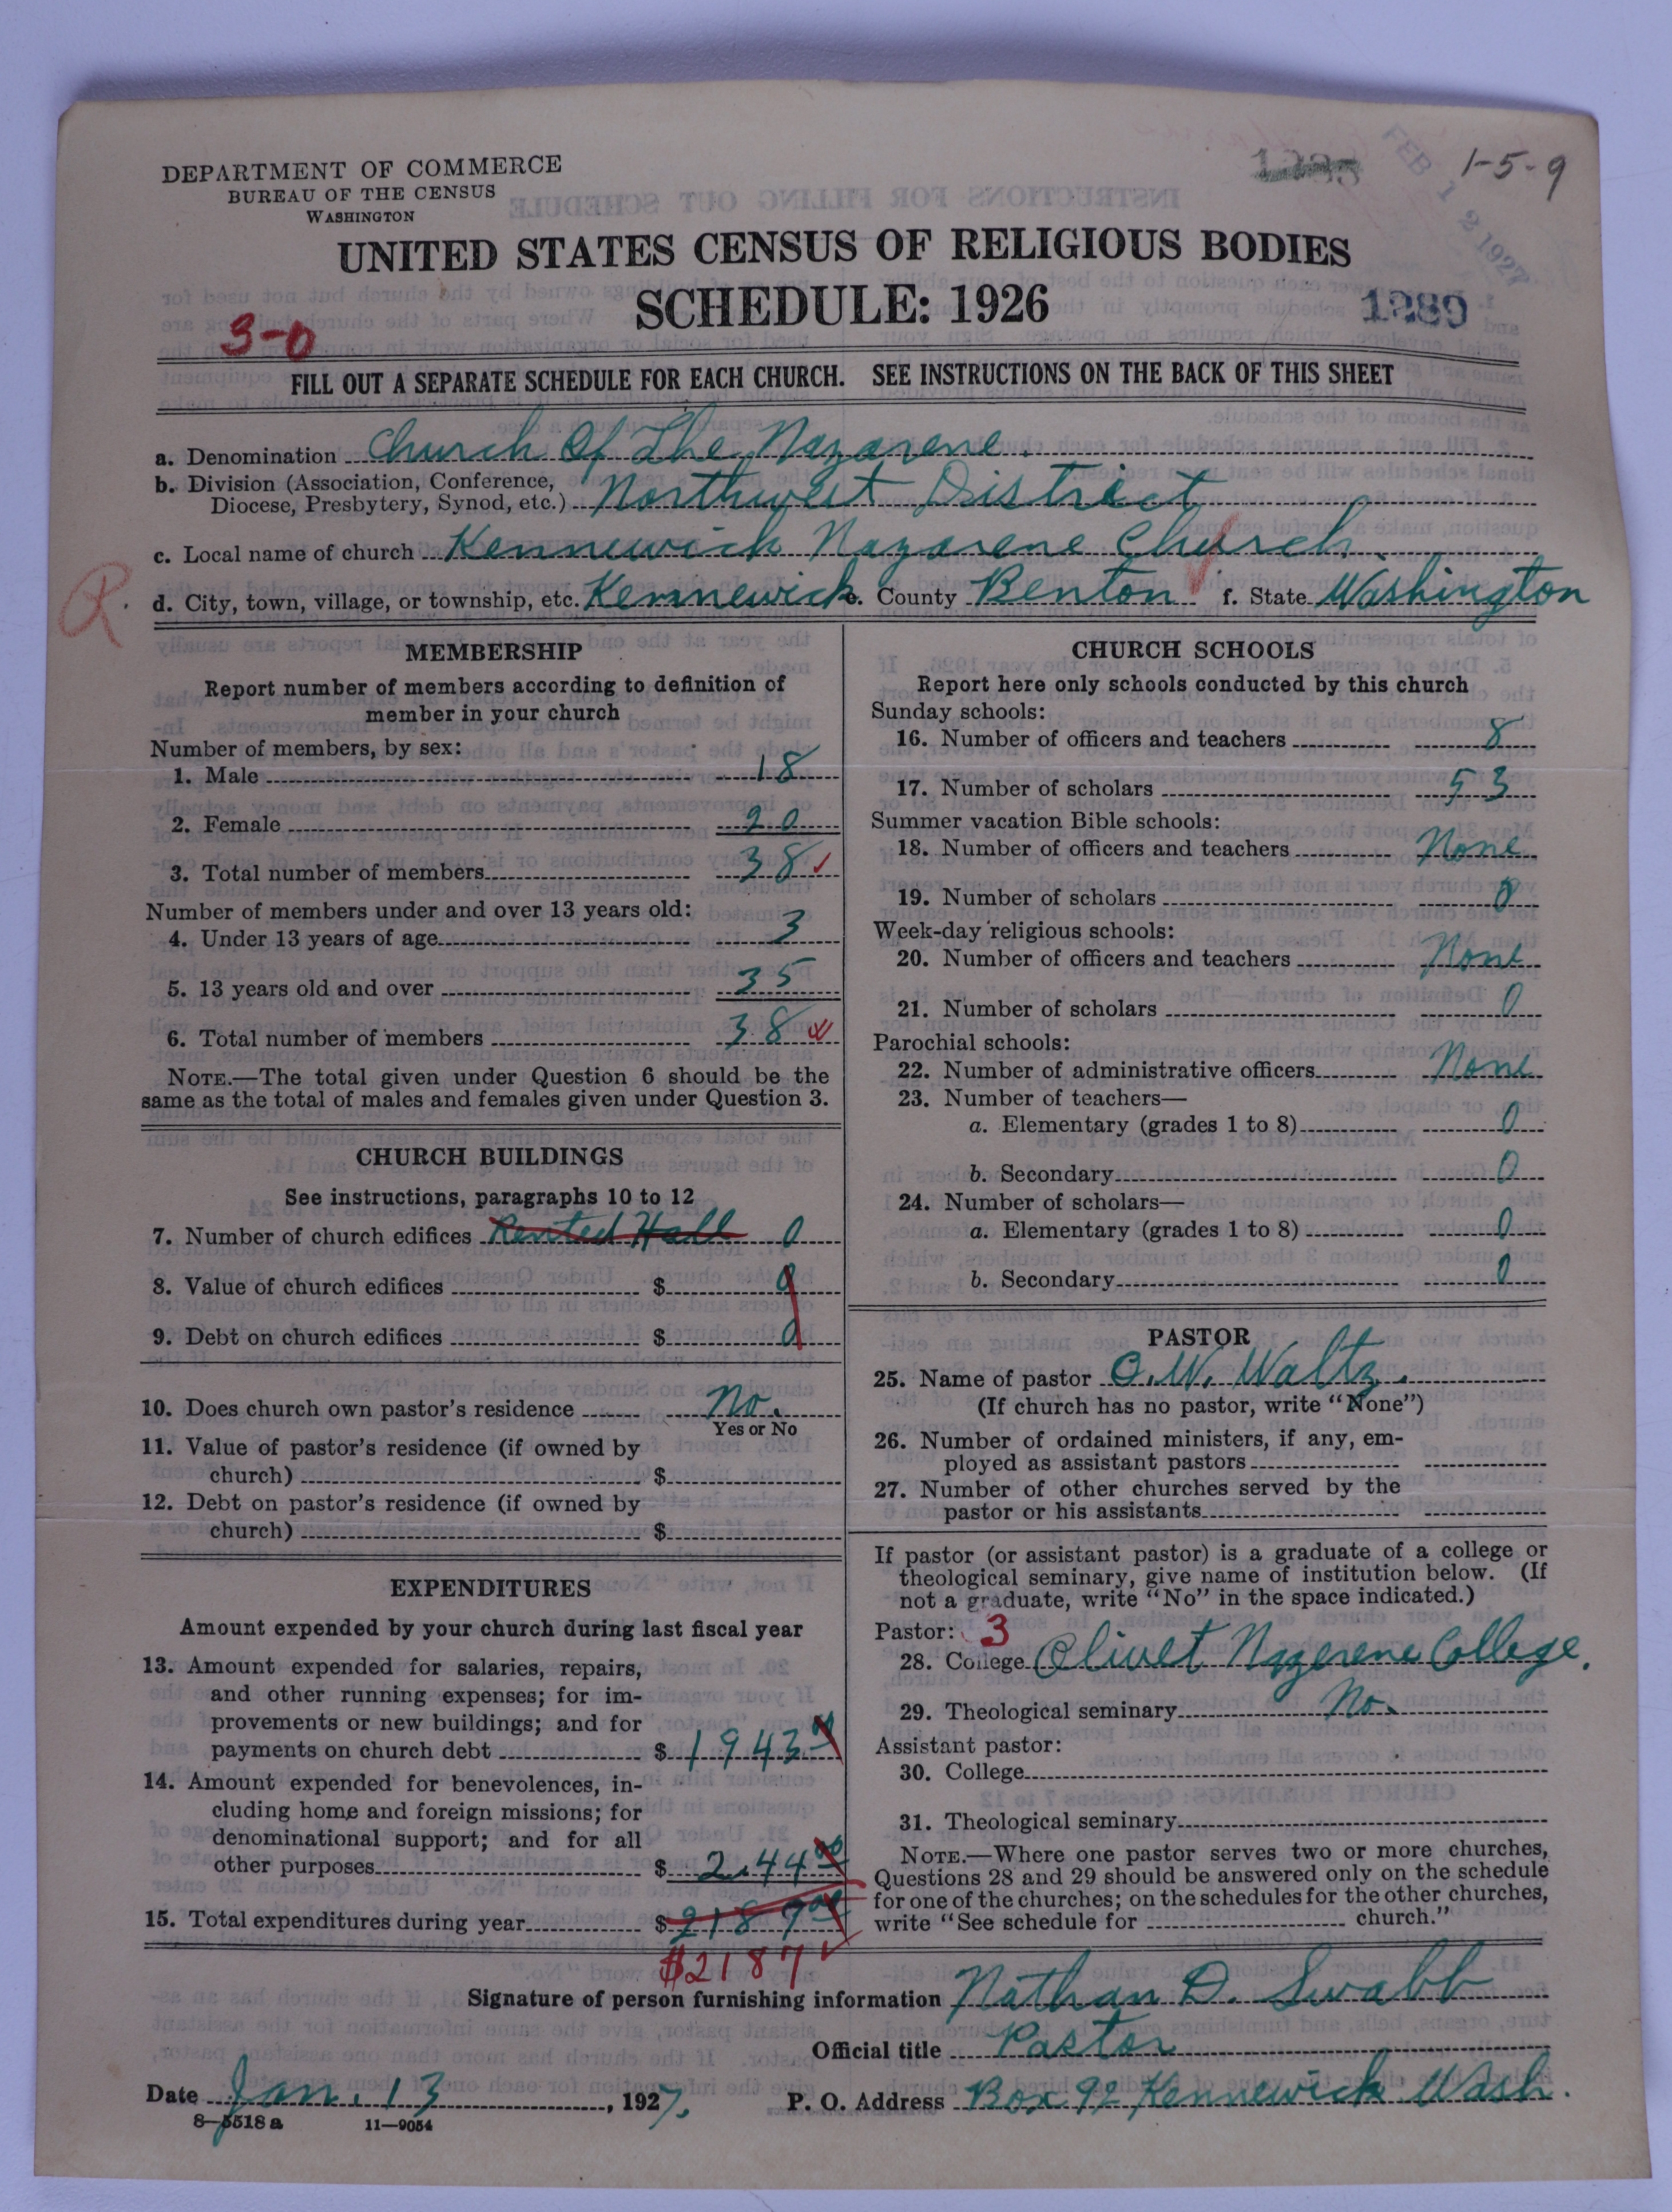 DEPARTMENT OF COMMERCE
BUREAU OF THE CENSUS
WASHINGTON
1-5-9
FEB 12 1927
UNITED STATES CENSUS OF RELIGIOUS BODIES
SCHEDULE: 1926
1289
3-0
FILL OUT A SEPARATE SCHEDULE FOR EACH CHURCH. SEE INSTRUCTIONS ON THE BACK OF THIS SHEET
a. Denomination Church Of The Nazarene.
b. Division (Association, Conference,
Diocese, Presbytery, Synod, etc.) Northwest District
c. Local name of church Kennewick Nazarene Church.
R. d. City, town, village, or township, etc. Kennewick e. County Benton f. State Washington
MEMBERSHIP
Report number of members according to definition of
member in your church
Number of members, by sex:
1. Male 18
2. Female 20
3. Total number of members 38
Number of members under and over 13 years old:
4. Under 13 years of age 3
5. 13 years old and over 35
6. Total number of members 38
NOTE.—The total given under Question 6 should be the
same as the total of males and females given under Question 3.
CHURCH BUILDINGS
See instructions, paragraphs 10 to 12
7. Number of church edifices Rented Hall 0
8. Value of church edifices $ 0
9. Debt on church edifices $ 0
10. Does church own pastor's residence No.
Yes or No
11. Value of pastor's residence (if owned by
church) $
12. Debt on pastor's residence (if owned by
church) $
EXPENDITURES
Amount expended by your church during last fiscal year
13. Amount expended for salaries, repairs,
and other running expenses; for im-
provements or new buildings; and for
payments on church debt $ 1943
14. Amount expended for benevolences, in-
cluding home and foreign missions; for
denominational support; and for all
other purposes $ 244 00
15. Total expenditures during year $ 2187 00
$2187
CHURCH SCHOOLS
Report here only schools conducted by this church
Sunday schools:
16. Number of officers and teachers 8
17. Number of scholars 53
Summer vacation Bible schools:
18. Number of officers and teachers None
19. Number of scholars 0
Week-day religious schools:
20. Number of officers and teachers None
21. Number of scholars 0
Parochial schools:
22. Number of administrative officers None
23. Number of teachers—
a. Elementary (grades 1 to 8) 0
b. Secondary 0
24. Number of scholars—
a. Elementary (grades 1 to 8) 0
b. Secondary 0
PASTOR
25. Name of pastor O. W. Waltz.
(If church has no pastor, write "None")
26. Number of ordained ministers, if any, em-
ployed as assistant pastors
27. Number of other churches served by the
pastor or his assistants
If pastor (or assistant pastor) is a graduate of a college or
theological seminary, give name of institution below. (If
not a graduate, write "No" in the space indicated.)
Pastor: 3
28. College Olivet Nazerene College.
29. Theological seminary No.
Assistant pastor:
30. College
31. Theological seminary
NOTE.—Where one pastor serves two or more churches,
Questions 28 and 29 should be answered only on the schedule
for one of the churches; on the schedules for the other churches,
write "See schedule for church."
Signature of person furnishing information Nathan D. Swabb
Official title Pastor
Date Jan. 13, 1927. P. O. Address Box 92 Kennewick Wash.
8-5518a 11-9054